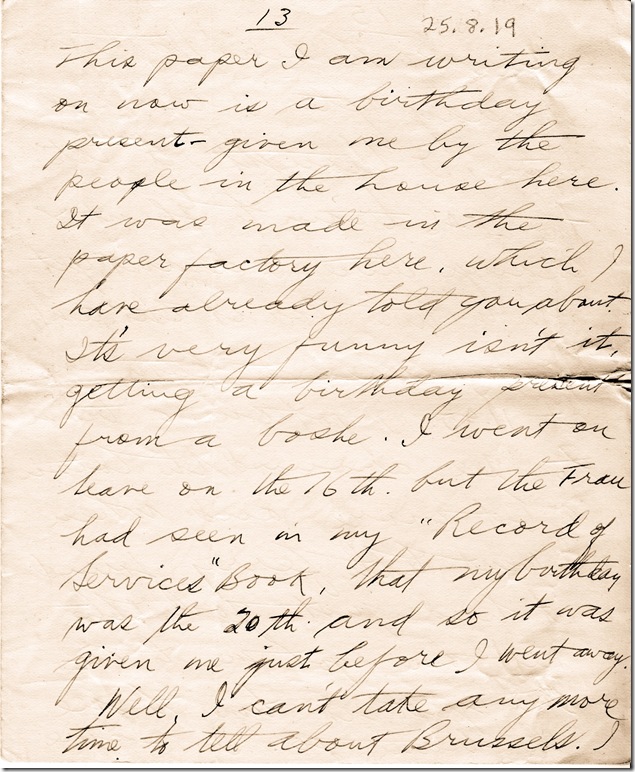 13
25.8.19
This paper I am writing
on now is a birthday
present- given me by the
people in the house here.
It was made in the
paper factory here, which I
have already told you about.
It's very funny isn't it,
getting a birthday present
from a boshe. I went on
leave on the 16th. but the Frau
had seen in my "Record of
Services" Book, that my birthday
was the 20th. and so it was
given me just before I went away.
Well, I can't take any more
time to tell about Brussels. I